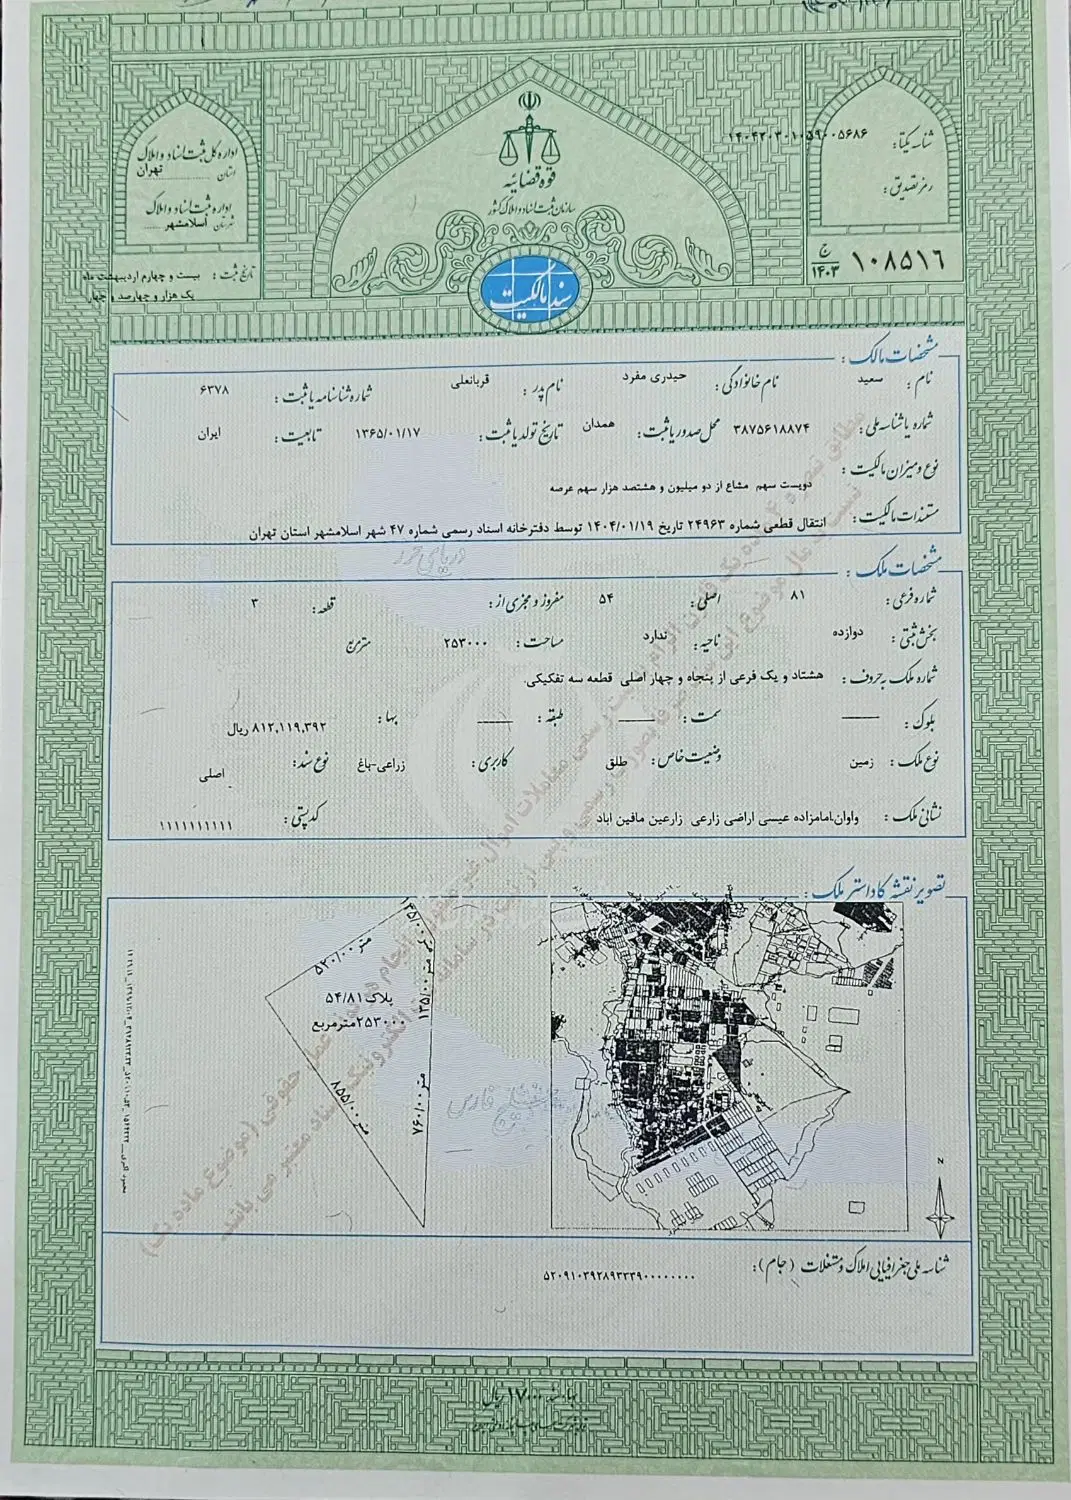 اداره کل ثبت اسناد و املاک
استان تهران
اداره ثبت اسناد و املاک
شهرستان اسلامشهر
تاریخ ثبت : بیست و چهارم اردیبهشت ماه
یک هزار و چهارصد و چهار
قوه قضائیه
سازمان ثبت اسناد و املاک کشور
سند مالکیت
شناسه یکتا: ۱۴۰۴۲۰۳۰۱۰۵۹۰۰۵۶۸۶
رمز تصدیق :
۱۰۸۵۱۶ ج ۱۴۰۳
مشخصات مالک :
نام : سعید نام خانوادگی : حیدری مفرد نام پدر : قربانعلی شماره شناسنامه یا ثبت : ۶۳۷۸
شماره یا شناسه ملی : ۳۸۷۵۶۱۸۸۷۴ محل صدور یا ثبت : همدان تاریخ تولد یا ثبت : ۱۳۶۵/۰۱/۱۷ تابعیت : ایران
نوع و میزان مالکیت :
دویست سهم مشاع از دو میلیون و هشتصد هزار سهم عرصه
مستندات مالکیت : انتقال قطعی شماره ۲۴۹۶۳ تاریخ ۱۴۰۴/۰۱/۱۹ توسط دفترخانه اسناد رسمی شماره ۴۷ شهر اسلامشهر استان تهران
دریای خزر
مشخصات ملک :
شماره فرعی : ۸۱ اصلی : ۵۴ مفروز و مجزی از : قطعه : ۳
بخش ثبتی : دوازده ناحیه : ندارد مساحت : ۲۵۳۰۰۰ مترمربع
شماره ملک به حروف : هشتاد و یک فرعی از پنجاه و چهار اصلی قطعه سه تفکیکی.
بلوک : ــــ سمت : ــــ طبقه : ــــ بها : ۸۱۲,۱۱۹,۳۹۲ ریال
نوع ملک : زمین وضعیت خاص : طلق کاربری : زراعی-باغ نوع سند : اصلی
نشانی ملک : واوان.امامزاده عیسی اراضی زارعی زارعین مافین اباد کدپستی : ۱۱۱۱۱۱۱۱۱۱
تصویر نقشه کاداستر ملک :
۵۲۰/۰۰ متر
۱۳۵/۰۰ متر
پلاک ۵۴/۸۱
۲۵۳۰۰۰ مترمربع
۸۵۵/۰۰ متر
۷۶۰/۰۰ متر
خلیج فارس
N
شناسه ملی جغرافیایی املاک و مستغلات (جام) : ۵۲۰۹۱۰۳۹۲۸۹۳۳۳۹۰۰۰۰۰۰۰۰۰
بهاء سند ۱۷۰۰۰ ریال